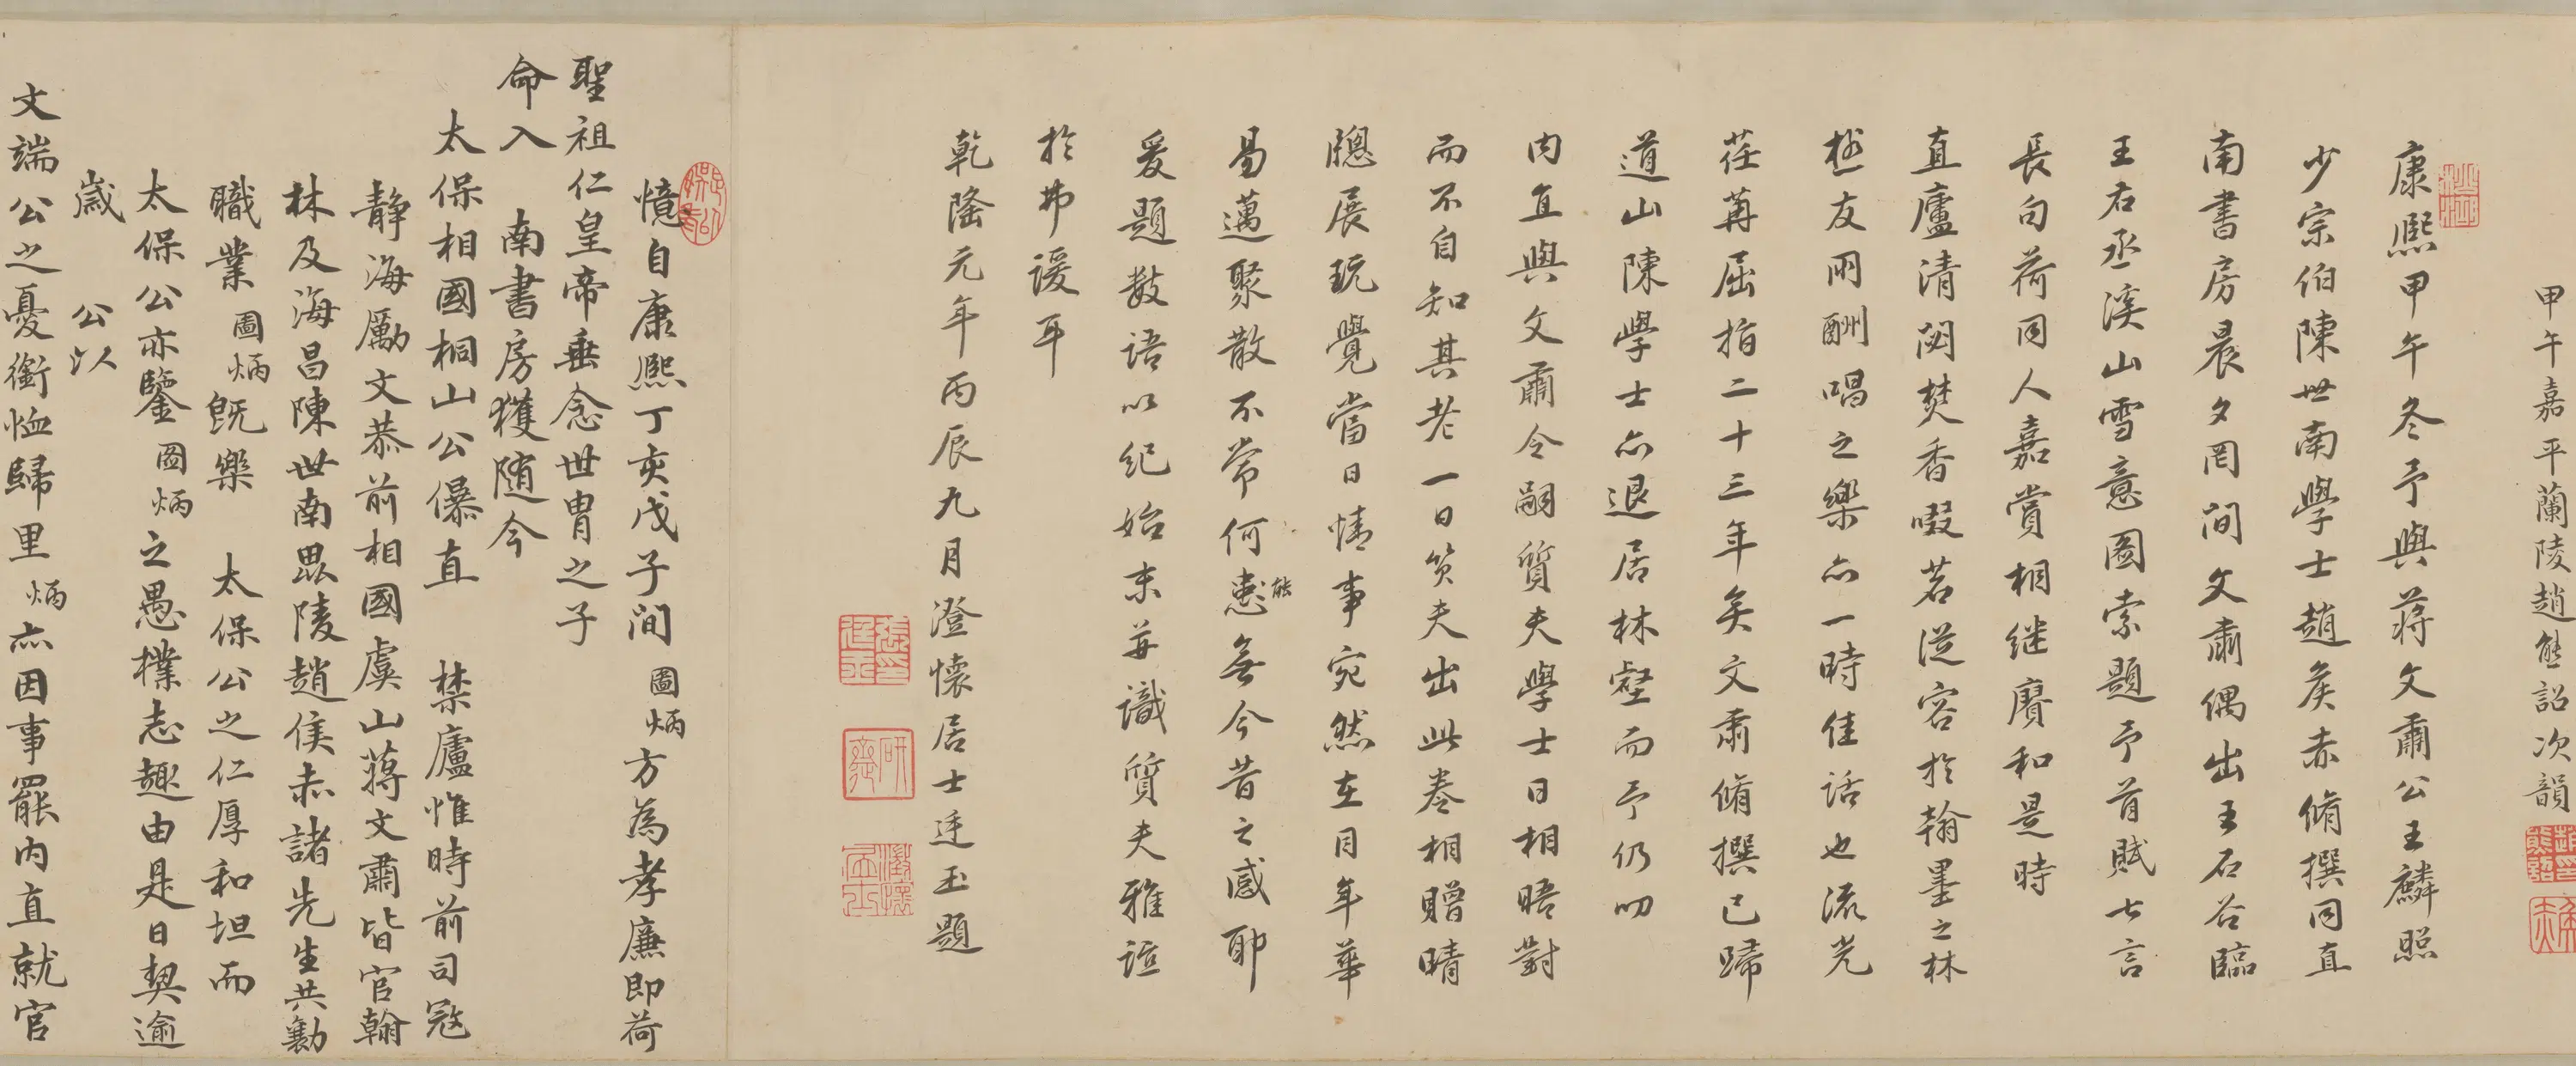 甲午嘉平蘭陵趙熊詔次韻
康熙甲午冬予與蔣文肅公王麟照
少宗伯陳世南學士趙矦赤脩撰同直
南書房晨夕罔間文肅偶出王石谷臨
王右丞溪山雪意圖索題予首賦七言
長句荷同人嘉賞相继賡和是時
直廬清閟焚香啜茗從容於翰墨之林
極友朋酬唱之樂亦一時佳話也流光
荏苒屈指二十三年矣文肅脩撰已歸
道山陳學士亦退居林壑而予仍叨
内直與文肅令嗣質夫學士日相晤對
而不自知其老一日質夫出此卷相贈晴
牕展玩覺當日情事宛然在目年華
易邁聚散不常何能恝無今昔之感耶
爰題數語以紀始末並識質夫雅誼
於弗諼耳
乾隆元年丙辰九月澄懷居士廷玉題
憶自康熙丁亥戊子间圖炳方為孝廉即荷
聖祖仁皇帝垂念世胄之子
命入南書房獲随今
太保相國桐山公儤直禁廬惟時前司寇
静海勵文恭前相國虞山蔣文肅皆官翰
林及海昌陳世南毘陵趙侯赤諸先生共勷
職業圖炳既樂太保公之仁厚和坦而
太保公亦鑒圖炳之愚樸志趣由是日契逾
歲公以
文端公之憂銜恤歸里炳亦因事罷内直就官